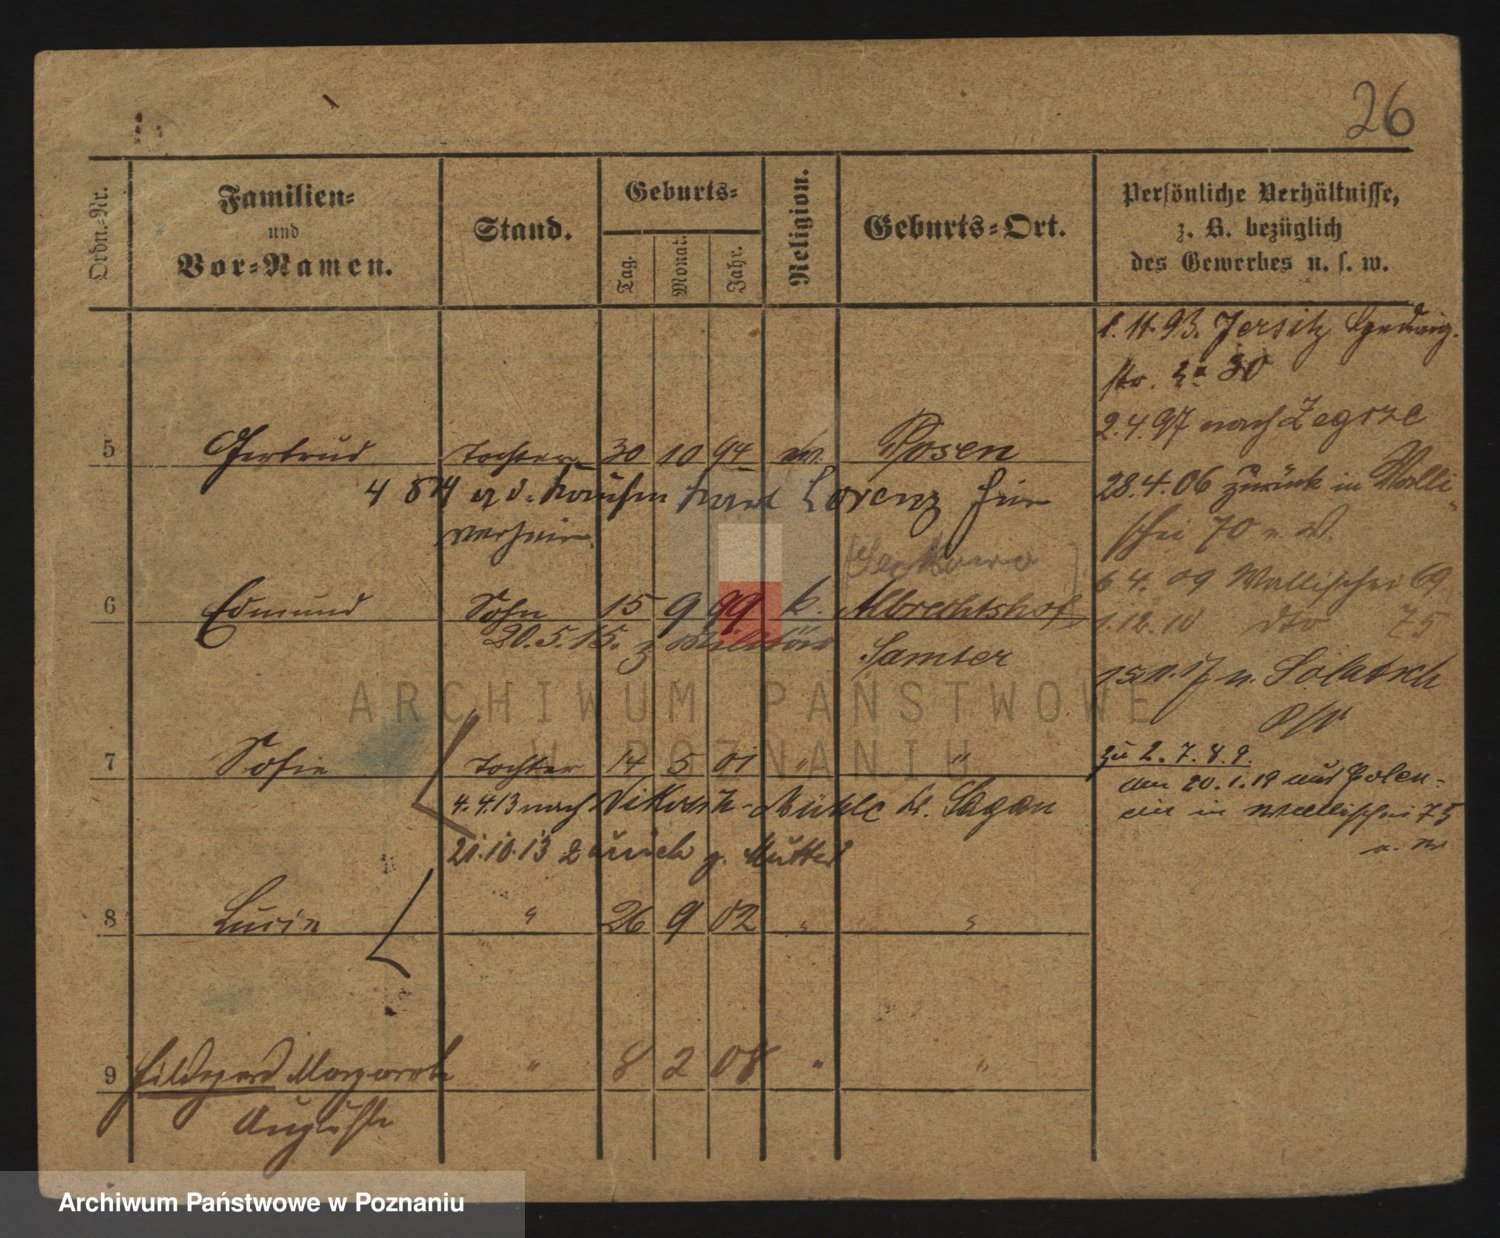 26
Ordn.-Nr.
Familien-
und
Vor-Namen.
Stand.
Geburts-
Tag.
Monat.
Jahr.
Religion.
Geburts-Ort.
Persönliche Verhältnisse,
z. B. bezüglich
des Gewerbes u. s. w.
1.11.93. Jersitz Hedwig-
str. 30
2.4.97 nach Zegrze
5 Gertrud Tochter 30 10 94 Posen
28.4.06 zurück in Walli-
schei 70
Lorenz hier
verheir.
6.4.09 Wallischei 69
6 Edmund Sohn 15 9 99 k. Albrechtshof
1.12.10 dto 75
20.5.15. z Militär
Samter
7 Sofie Tochter 14 5 01 " "
zu 2. 7. 8. 9.
den 20.1.19 aus
4.4.13 nach Mühle Kr. Sagan
in Wallischei 75
21.10.13 zurück z. Mutter
8 Lucie " 26 9 02 " "
9 Hildegard Margarete " 8 2 08 " "
Auguste
ARCHIWUM PAŃSTWOWE
W POZNANIU
Archiwum Państwowe w Poznaniu